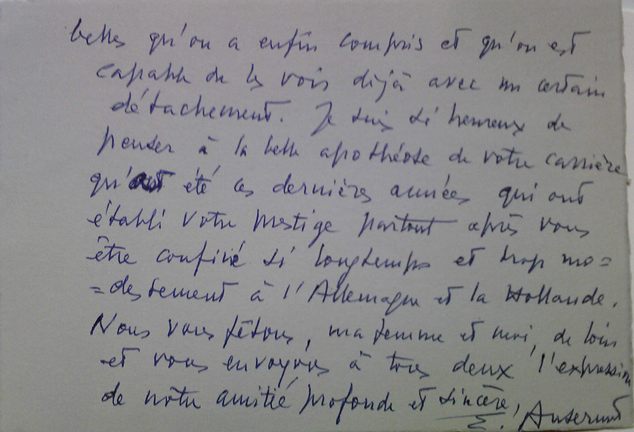 belles qu'on a enfin compris et qu'on est
capable de les vois déjà avec un certain
détachement. Je suis si heureux de
penser à la belle apothéose de votre carrière
qu'ont été ces dernières années qui ont
établi votre prestige partout après vous
être confiné si longtemps et trop mo=
=destement à l'Allemagne et la Hollande.
Nous vous fêtons, ma femme et moi, de loin
et vous envoyons à tous deux l'expression
de nôtre amitié profonde et sincère!
E. Ansermet